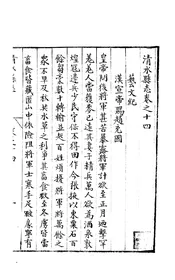 清水縣志卷之十四
藝文紀
漢宣帝賜趙充國
皇帝問後將軍甚苦暴露將軍計欲至正月迺擊罕
羌羌人當獲麥已遠其妻子精兵萬人欲為酒泉敦
煌寇邊兵少民守保不得田作今張掖以東粟石百
餘芻藁束數十轉輸並起百姓煩擾將軍將萬餘之
眾不早及秋共水草之利爭其畜食欲至冬虜皆當
畜食皆藏匿山中依險阻將軍士寒手足皸瘃寧有